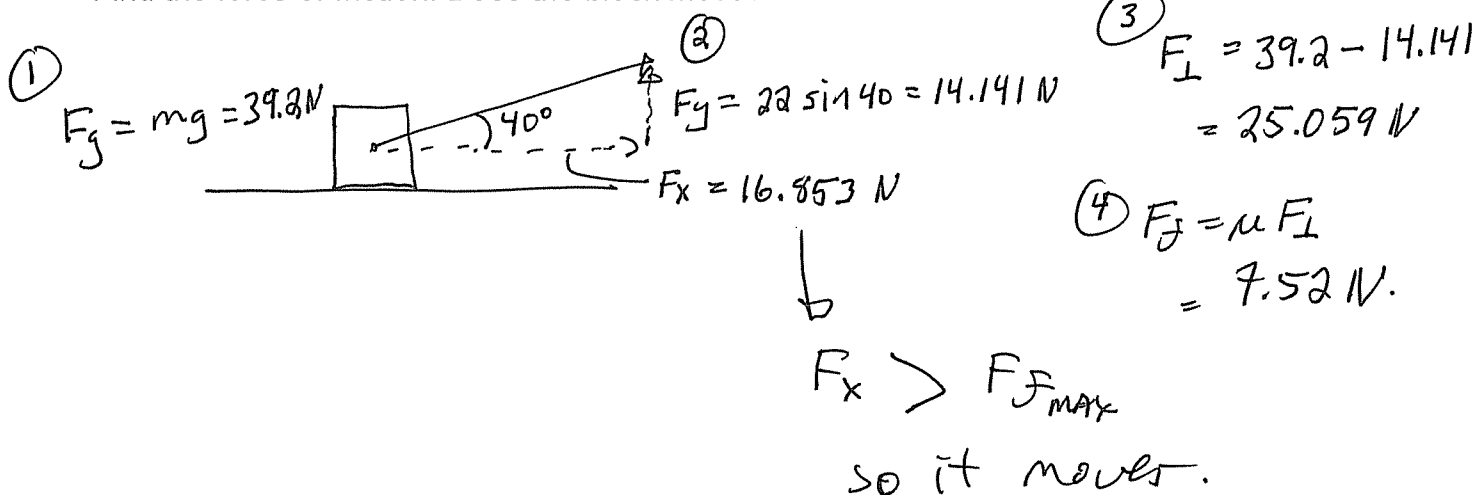 ①
F_g = mg = 39.2 N
40°
②
F_y = 22 sin 40 = 14.141 N
F_x = 16.853 N
③
F_⊥ = 39.2 - 14.141
= 25.059 N
④ F_f = μ F_⊥
= 7.52 N.
F_x > F_f MAX
so it moves.